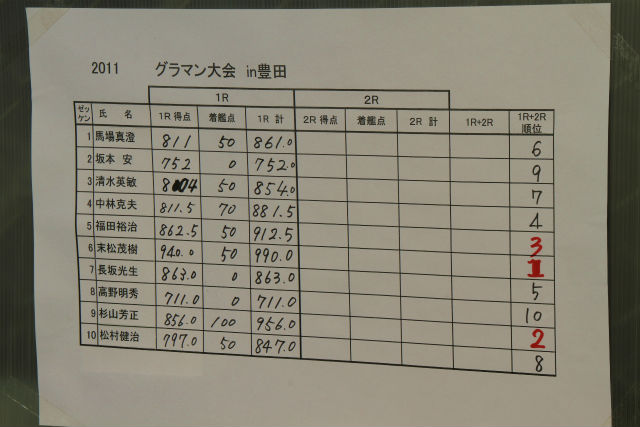 2011 グラマン大会 in豊田
1R 2R
ゼッケン 氏 名 1R 得点 着艦点 1R 計 2R 得点 着艦点 2R 計 1R+2R 1R+2R 順位
1 馬場真澄 811 50 861.0 6
2 坂本 安 752 0 752.0 9
3 清水英敏 804 50 854.0 7
4 中林克夫 811.5 70 881.5 4
5 福田裕治 862.5 50 912.5 3
6 末松茂樹 940.0 50 990.0 1
7 長坂光生 863.0 0 863.0 5
8 高野明秀 711.0 0 711.0 10
9 杉山芳正 856.0 100 956.0 2
10 松村健治 797.0 50 847.0 8